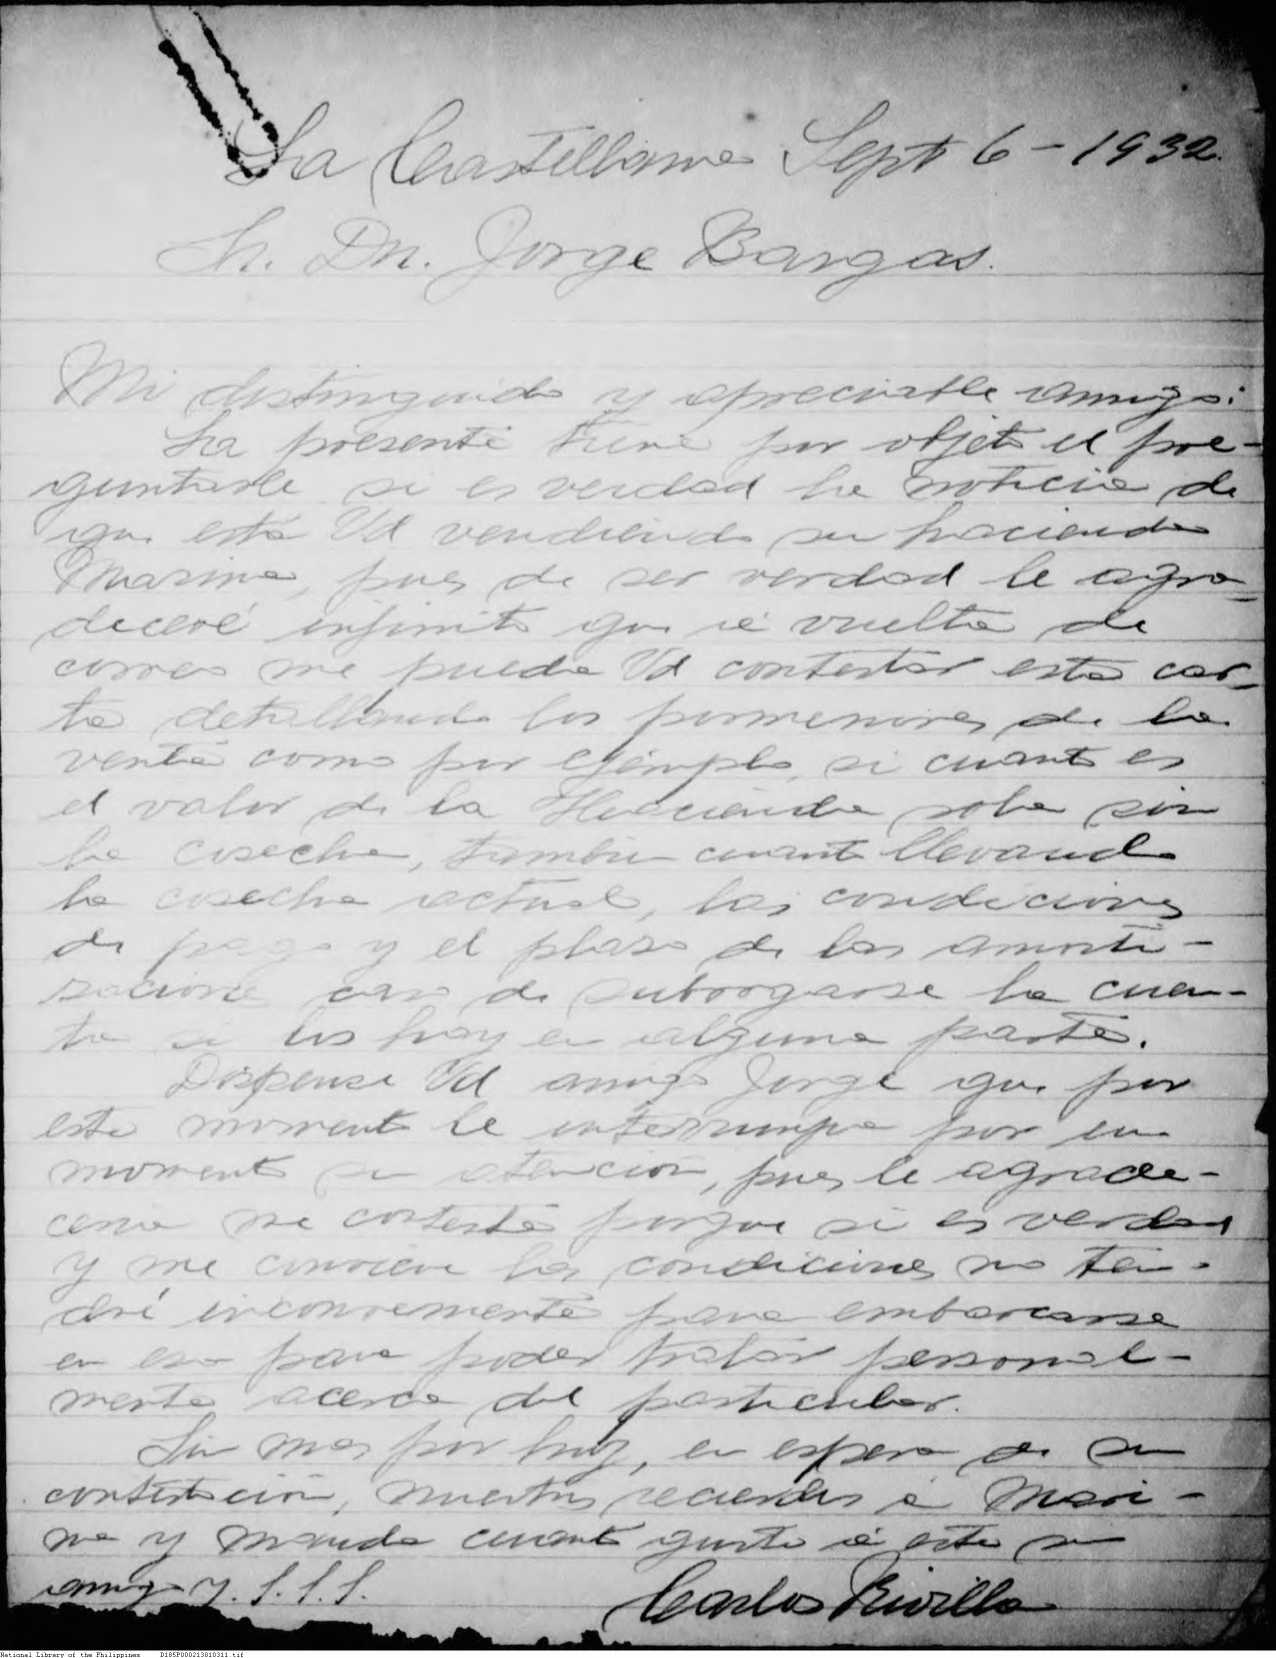 La Castellana Sept 6-1932.
Sr. Dn. Jorge Bargas.
Mi distinguido y apreciable amigo:
La presente tiene por objeto el pre-
guntarle si es verdad la noticia de
que está Vd vendiendo su hacienda
Marina, pues de ser verdad le agra-
deceré infinito que á vuelta de
correo me pueda Vd contestar esta car-
ta detallando los pormenores de la
venta como por ejemplo, si cuanto es
el valor de la Hacienda sola sin
la cosecha, tambien cuanto llevando
la cosecha actual, las condiciones
de pago y el plaso de las amorti-
saciones caso de subrogarse la cuen-
ta si los hay en alguna parte.
Dispense Vd amigo Jorge que por
este momento le interrumpa por un
momento su atención, pues le agrade-
ceria me conteste porque si es verdad
y me conviene las condiciones no ten-
dré inconveniente para embarcarse
en esa para poder tratar personal-
mente acerca del particular.
Sin mas por hoy, en espera de su
contestación, nuestros recuerdos a Mari-
na y mande cuanto guste á este su
amigo y. S.S.S.
Carlos Rivilla
National Library of the Philippines D185P000213810311.tif